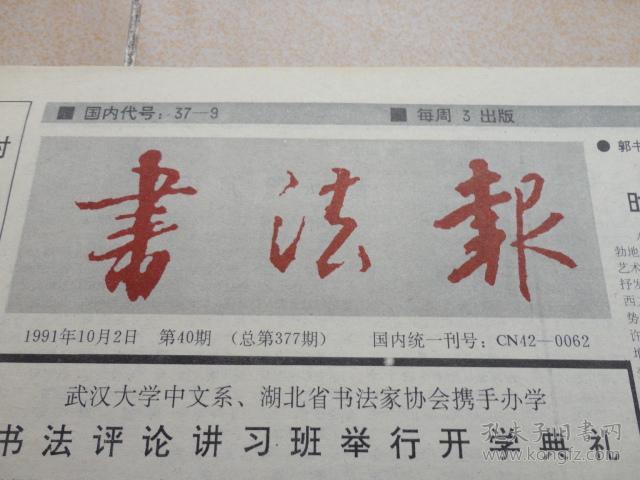 ■ 国内代号：37—9 ■ 每周 3 出版
書法報
1991年10月2日 第40期 （总第377期） 国内统一刊号：CN42—0062
武汉大学中文系、湖北省书法家协会携手办学
书法评论讲习班举行开学典礼
时
● 郭书
勃地
艺术
抒发
「西
势
许
孔夫子旧书网
www.kongfz.com